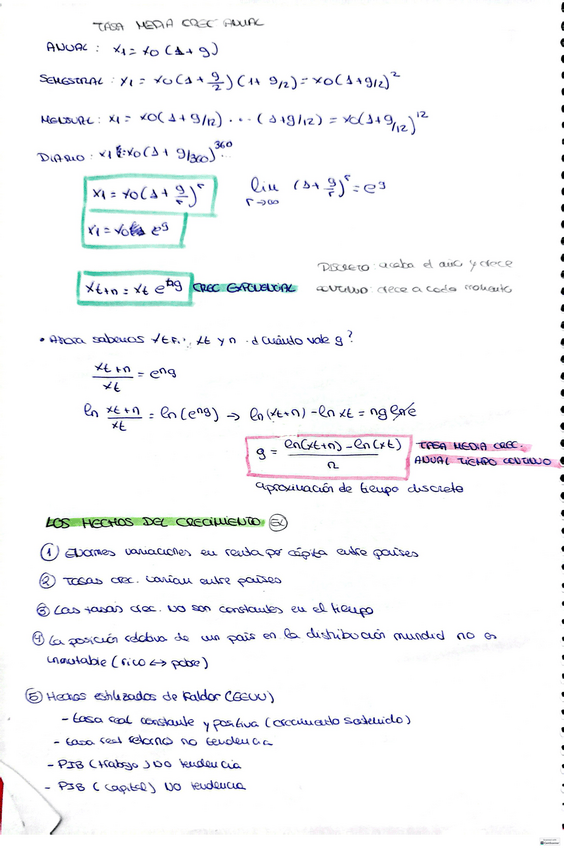 TASA MEDIA CREC ANUAL
ANUAL: x1 = x0 (1+g)
SEMESTRAL: x1 = x0 (1+g/2) (1+ g/2) = x0 (1+g/2)^2
MENSUAL: x1 = x0 (1+g/12) ... (1+g/12) = x0 (1+g/12)^12
DIARIO: x1 = x0 (1+ g/360)^360
x1 = x0 (1+ g/r)^r    lim r→∞ (1+ g/r)^r = e^g
x1 = x0 e^g
DISCRETO: acaba el año y crece
xt+n = xt e^ng  CREC EXPONENCIAL  CONTINUO: crece a cada momento
• Ahora sabemos xt+n, xt y n. ¿Cuánto vale g?
xt+n / xt = e^ng
ln xt+n / xt = ln(e^ng) → ln(xt+n) - ln xt = ng ln e
g = ln(xt+n) - ln(xt) / n  TASA MEDIA CREC.
ANUAL TIEMPO CONTINUO
aproximación de tiempo discreto
LOS HECHOS DEL CRECIMIENTO
① Enormes variaciones en renta per cápita entre países
② Tasas crec. varian entre países
③ Las tasas crec. NO son constantes en el tiempo
④ La posición relativa de un país en la distribución mundial no es
inmutable (rico ↔ pobre)
⑤ Hechos estilizados de Kaldor (EEUU)
- tasa real constante y positiva (crecimiento sostenido)
- tasa real retorno no tendencia
- PIB (trabajo) NO tendencia
- PIB (capital) NO tendencia